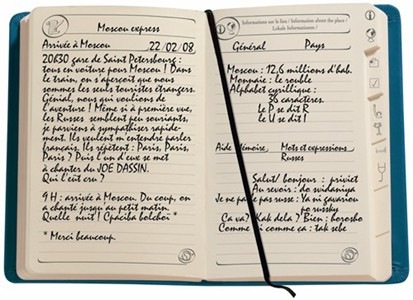 Moscou express
Arrivée à Moscou 22/02/08
20h30 gare de Saint Petersbourg :
tous en voiture pour Moscou ! Dans
le train, on s'aperçoit que nous
sommes les seuls touristes étrangers.
Génial, nous qui voulions de
l'aventure ! Même si à première vue,
les Russes semblent peu souriants,
je parviens à sympathiser rapide-
ment. Ils veulent m'entendre parler
français. Ils répètent : Paris, Paris,
Paris ? Puis l'un d'eux se met
à chanter du JOE DASSIN.
Qui l'eût cru ?
9H : arrivée à Moscou. Du coup, on
a chanté jusqu'au petit matin.
Quelle nuit ! Cpaciba bolchoi *
* Merci beaucoup.
Informations sur le lieu / Information about the place /
Lokale Informationen /
Général Pays
Moscou : 12,6 millions d'hab.
Monnaie : le rouble
Alphabet cyrillique :
36 caractères.
le P se dit R
le U se dit I
Aide Mémoire, Mots et expressions
Russes
Salut/ bonjour : priviet
Au revoir : do svidaniya
Je ne parle pas russe : Ya ni gavariou
po russky
Ca va? Kak dela ? Bien : horosho
Comme ci comme ça : tak sebe